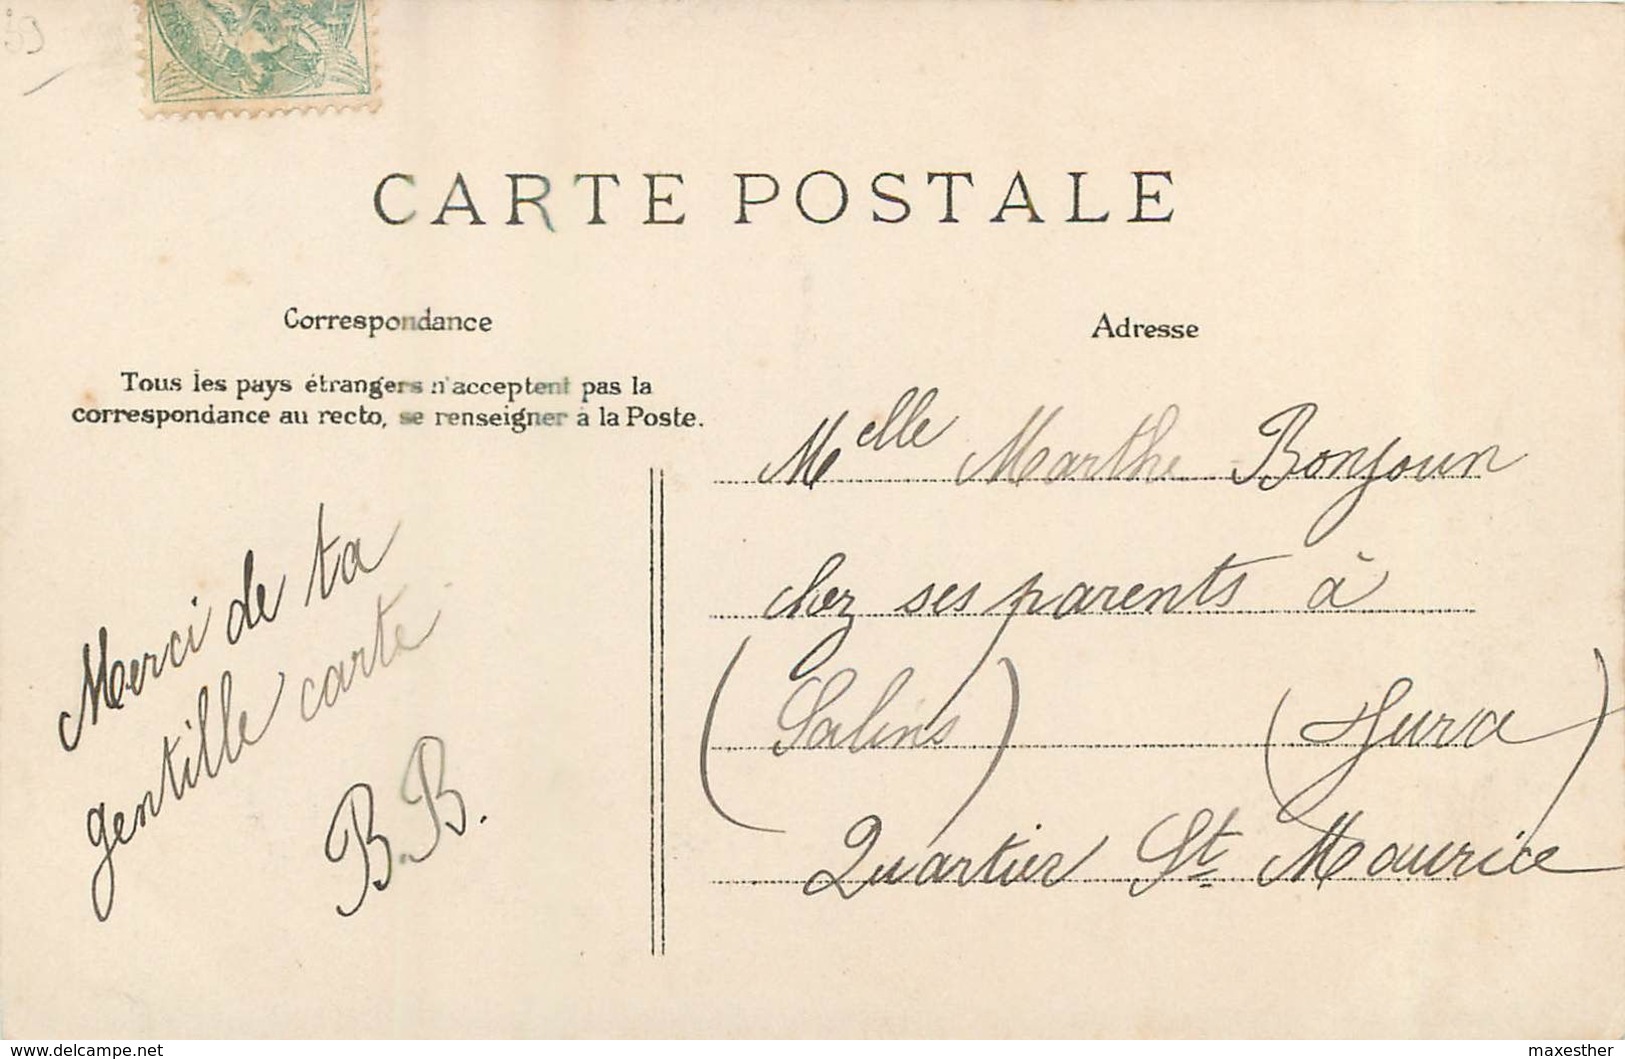 39
CARTE POSTALE
Correspondance
Tous les pays étrangers n'acceptent pas la
correspondance au recto, se renseigner à la Poste.
Merci de ta
gentille carte
B.B.
Adresse
Melle Marthe Bonjour
chez ses parents à
(Salins) (Jura)
Quartier St Maurice
www.delcampe.net
maxesther